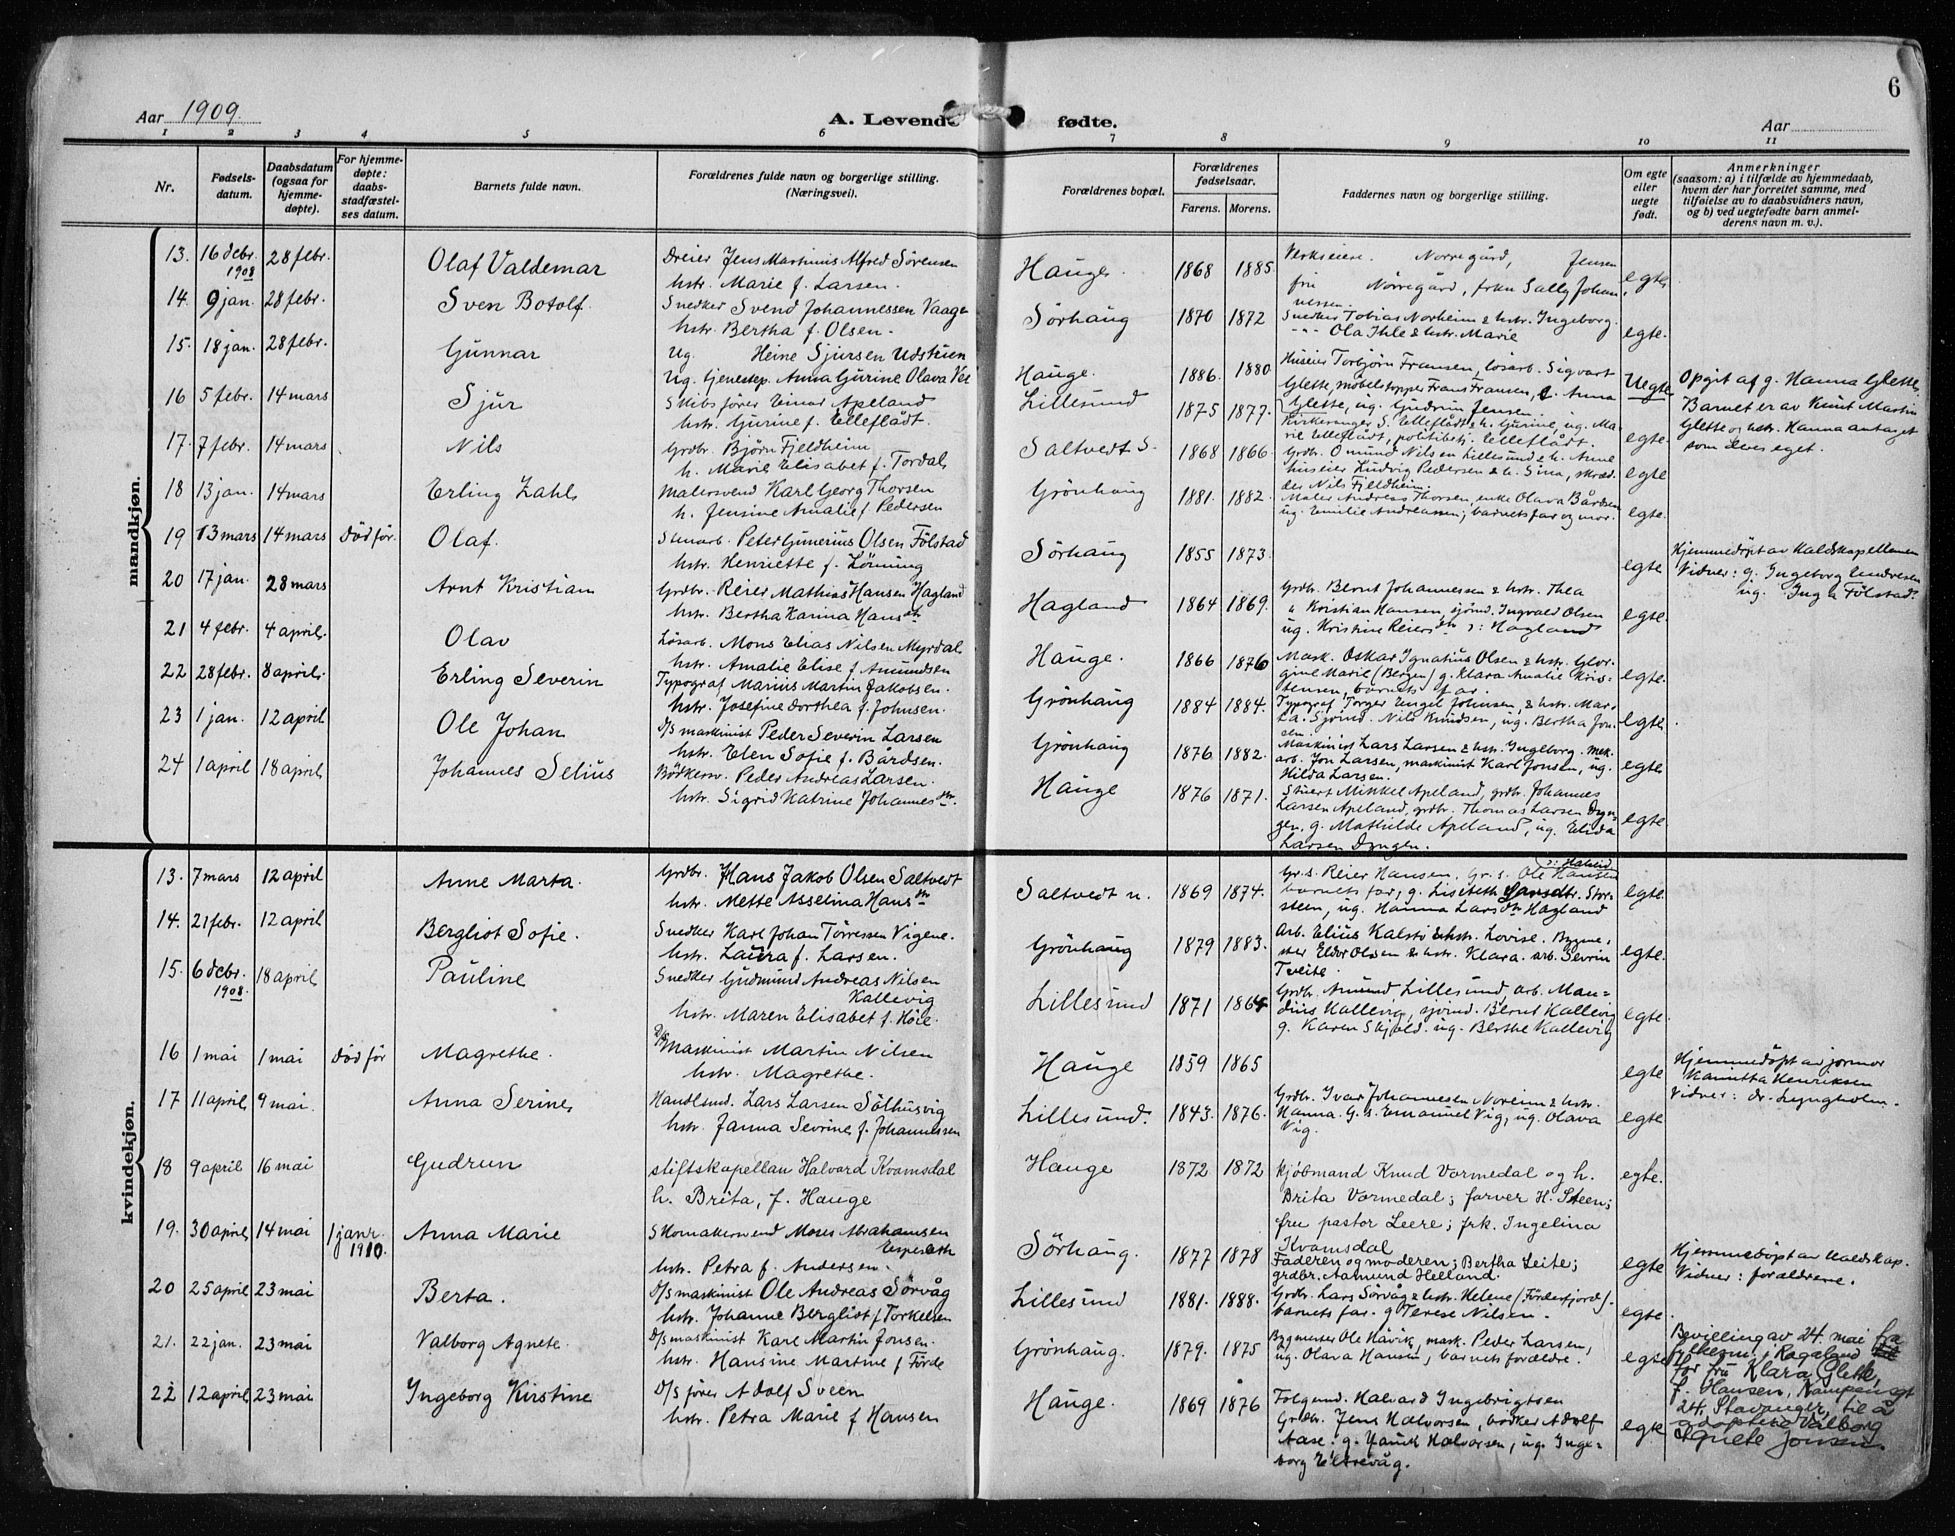 6
Aar 1909.
A. Levende fødte.
Aar
1 2 3 4 5 6 7 8 9 10 11
Nr. | Fødsels-datum. | Daabsdatum (ogsaa for hjemme-døpte). | For hjemme-døpte: daabs-stadfæstel-ses datum. | Barnets fulde navn. | Forældrenes fulde navn og borgerlige stilling. (Næringsvei). | Forældrenes bopæl. | Forældrenes fødselsaar. Farens. Morens. | Faddernes navn og borgerlige stilling. | Om egte eller uegte født. | Anmerkninger (saasom: a) i tilfælde av hjemmedaab, hvem der har forrettet samme, med tilføielse av to daabsvidners navn, og b) ved uegtefødte barn anmel-derens navn m. v.).
mandkjøn.
13. 16 debr. 1908 28 febr. Olaf Valdemar
Dreier Jens Martinius Alfred Sørensen
hstr. Marie f. Larsen.
Hauge. 1868 1885.
Verkseiere. Norregård, Jensen
fru Nörregård, frkn Sally Johan
nessen.
egte
14. 9 jan. 28 febr. Sven Botolf.
Snedker Svend Johannessen Vaage
hstr. Bertha f. Olsen.
Sörhaug 1870 1872
Snedker Tobias Norheim & hstr. Ingeborg.
Ola Ihle & hstr. Marie
egte.
15. 18 jan. 28 febr. Gunnar
Ug. Heine Sjursen Udstuen
Ug. tjenestep. Anna Gurine Olava Vei
Hauge. 1886. 1880
Huseier Torbjørn Fransen, lösarb. Sigvart
Glette, möbelstopper Frans Fransen, Anna
Glette, ug. Gudrun Jensen.
Uegte
Opgit af g. Hanna Glette.
Barnet er av Knut Martin
Glette og hstr. Hanna antaget
som deres eget.
16 5 febr. 14 mars Sjur
Skibsförer Einar Apeland
hstr. Gurine f. Elleflådt.
Lillesund 1875 1877.
Kirkesanger S. Elleflådt & h. Gurine, ug. Ma-
rie Elleflådt, politibetj. Elleflådt.
egte.
17. 7 febr. 14 mars Nils
Grdbr. Bjørn Fjeldheim
h. Marie Elisabet f. Tordal.
Saltvedt S. 1868 1866.
Grdbr. Omund Nilsen Lillesund & h. Anne
huseier Ludvig Pedersen & h. Sina, skræd-
der Nils Fjeldheim.
egte
18 13 jan. 14 mars Erling Zahl
Malersvend Karl Georg Thorsen
h. Jensine Amalie f Pedersen
Grönhaug 1881. 1882.
Maler Andreas Thorsen, enke Olava Bårdsen
ug. Emilie Andreassen; barnets far og mor.
egte.
19 13 mars 14 mars död för. Olaf.
Stenarb. Peter Gunerius Olsen Fölstad
hstr. Henriette f. Lönning
Sörhaug 1855 1873.
egte
Hjemmedöpt av Kaldskapellanen
Vidner: g. Ingeborg Endresen
ug. Inga Fölstad.
20 17 jan. 28 mars Arnt Kristian
Grdbr. Reier Mathias Hansen Hagland
hstr. Bertha Karina Hansdtr
Hagland 1864 1869.
Grdbr. Bernt Johannessen & hstr. Thea
" Kristian Hansen, sjömd. Ingvald Olsen
ug. Kristine Reiersdtr : Hagland
egte.
21 4 febr. 4 april. Olav
Lösarb. Mons Elias Nilsen Myrdal
hstr. Amalie Elise f. Amundsen
Hauge. 1866 1876
Mask. Oskar Ignatius Olsen & hstr. Geor-
gine Marie (Bergen) g. Klara Amalie Kris-
tensen, barnets far.
egte.
22 28 febr. 8 april. Erling Severin
Typograf Marius Martin Jakobsen.
hstr. Josefine Dorthea f. Johnsen.
Grönhaug 1884 1884.
Typograf Torger Engel Johnsen, & hstr. Mar-
ta. Sjömd. Nils Knudsen, ug. Bertha Jon-
sen.
egte.
23 1 jan. 12 april Ole Johan
D/S maskinist Peder Severin Larsen
hstr. Elen Sofie f. Bårdsen.
Grönhaug 1876 1882.
Maskinist Lars Larsen & hstr. Ingeborg. mek.
arb. Jon Larsen, maskinist Karl Jonsen, ug.
Hilda Larsen.
egte
24 1 april 18 april Johannes Selius
Bödkersv. Peder Andreas Larsen.
hstr. Sigrid Katrine Johannesdtr.
Hauge 1876 1871.
Stuert Mikkel Apeland, grdbr. Johannes
Larsen Apeland, grdbr. Thomas Larsen Dyn-
gen, g. Mathilde Apeland, ug. Elida
Larsen Dyngen.
egte.
kvindekjøn.
13. 7 mars 12 april Anne Marta.
Grdbr. Hans Jakob Olsen Saltvedt
hstr. Mette Asselina Hansdtr
Saltvedt n. 1869 1874.
Gr. s. Reier Hansen, Gr. s. Ole Hansen
barnets far, g. Lisebeth Stor-
steen, ug. Hanna Larsdtr Hagland
egte.
14. 21 febr. 12 april Bergliot Sofie.
Snedker Karl Johan Törressen Vigene.
hstr. Laura f. Larsen.
Grönhaug 1879 1883.
Arb. Elius Kalstö & hstr. Lovise. Bygme-
ster Eldor Olsen & hstr. Klara. arb. Sevrin
Tveite.
egte.
15. 6 debr. 1908. 18 april Pauline
Snedker Gudmund Andreas Nilsen
Kallevig
hstr. Maren Elisabet f. Höie.
Lillesund 1871 1864
Grdbr. Amund Lillesund, arb. Man-
dius Kallevig, sjömd. Bernt Kallevig
g. Karen Skjold. ug. Berthe Kallevig
egte.
16 1 mai 1 mai död för Magrethe.
D/S Maskinist Martin Nilsen
hstr. Magrethe.
Hauge 1859 1865
egte
Hjemmedöpt av jormor
Kamitta Henriksen
Vidner: dr. Lyngholm.
17 11 april 9 mai. Anna Serine
Handlsmd. Lars Larsen Sölhusvig
hstr. Janna Sevrine f. Johannessen
Lillesund. 1843. 1876.
Grdbr. Ivar Johannesen Noreim & hstr.
Hanna. G. s. Emanuel Vig, ug. Olava
Vig.
egte
18 9 april 16 mai Gudrun
stiftskapellan Halvard Kvamsdal
h. Brita, f. Hauge
Hauge 1872 1872
kjöbmand Knud Vormedal og h.
Brita Vormedal; farver H. Steen;
fru pastor Leere; frk. Ingelina
Kvamsdal
egte.
19. 30 april 14 mai 1 janr. 1910. Anna Marie
Skomakersvend Mons Abrahamsen
Espeseth
hstr. Petra f. Andersen.
Sörhaug. 1877 1878
Faderen og moderen; Bertha Leite;
grdbr. Aamund Helland.
egte
Hjemmedöpt av Kaldskap.
Vidner: forældrene.
20 25 april 23 mai Berta.
D/S maskinist Ole Andreas Sörvåg
hstr. Johanne Bergliot f Torkelsen
Lillesund 1881. 1888.
Grdbr. Lars Sörvåg & hstr. Helene (Förderfjord).
barnets far. g Terese Nilsen.
egte.
21. 22 jan. 23 mai Valborg Agnete.
D/S maskinist Karl Martin Jonsen.
hstr. Hansine Martine f Förde
Grönhaug. 1879. 1875
Bygmester Ole Håvik, mask. Peder Larsen,
ug. Olava Hansen, barnets forældre.
egte
Bevilling av 24. mai fra
fylkesm. i Rogaland
for fru Klara Glette,
f. Hansen, Kampensgt
24, Stavanger, til å
adoptere Valborg
Agnete Jonsen.
22 12 april 23 mai Ingeborg Kirstine
D/S förer Adolf Sveen
hstr. Petra Marie f Hansen
Hauge. 1869 1876
Folgemd. Halvard Ingebrigtsen
Grdbr. Jens Halvorsen, bödker Adolf
Aase. g. Halvorsen, ug. Inge-
borg Eltrevåg.
egte